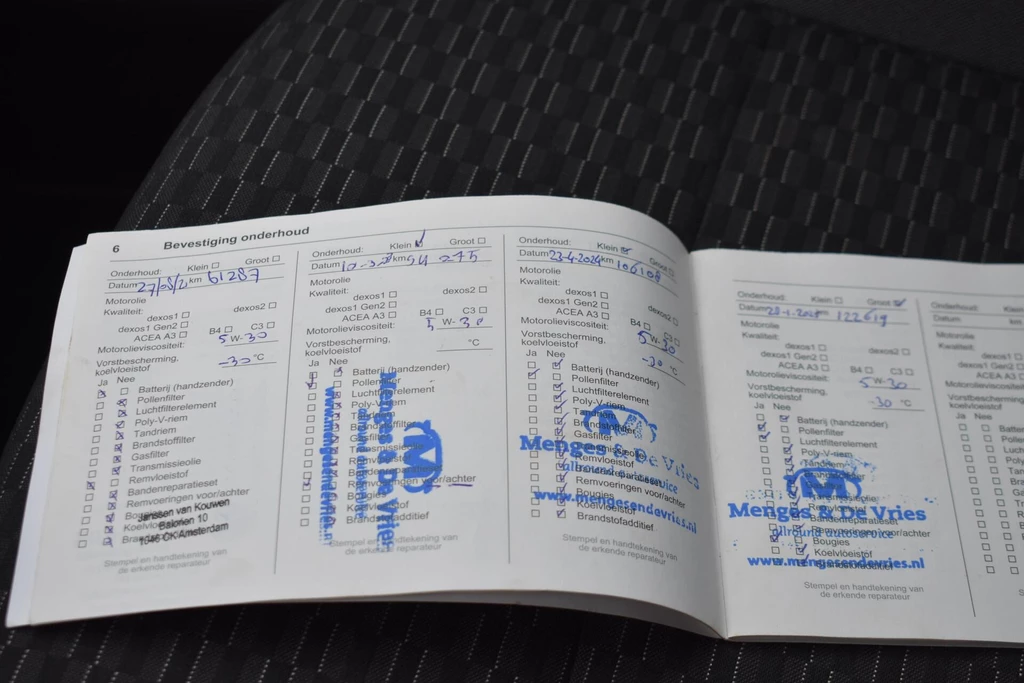 6 Bevestiging onderhoud
Onderhoud: Klein Groot
Datum 27/08/21 km 61287
Motorolie
Kwaliteit:
dexos1 dexos2
dexos1 Gen2
ACEA A3 B4 C3
Motorolieviscositeit: 5 W-30
Vorstbescherming,
koelvloeistof -30 °C
Ja Nee
Batterij (handzender)
Pollenfilter
Luchtfilterelement
Poly-V-riem
Tandriem
Brandstoffilter
Gasfilter
Transmissieolie
Remvloeistof
Bandenreparatieset
Remvoeringen voor/achter
Janssen van Kouwen
1046 CK Amsterdam
Stempel en handtekening van
de erkende reparateur
Onderhoud: Klein Groot
Datum km
Motorolie
Kwaliteit:
dexos1 dexos2
dexos1 Gen2
ACEA A3 B4 C3
Motorolieviscositeit: 5 W-30
Vorstbescherming,
koelvloeistof °C
Ja Nee
Batterij (handzender)
Pollenfilter
Luchtfilterelement
Poly-V-riem
Tandriem
Brandstoffilter
Gasfilter
Remvloeistof
Bandenreparatieset
Remvoeringen voor/achter
Bougies
Koelvloeistof
Brandstofadditief
Menges & De Vries
Stempel en handtekening van
de erkende reparateur
Onderhoud: Klein Groot
Datum 23-4-2024 km 106108
Motorolie
Kwaliteit:
dexos1 dexos2
dexos1 Gen2
ACEA A3 B4 C3
Motorolieviscositeit: 5 W-30
Vorstbescherming,
koelvloeistof -30 °C
Ja Nee
Batterij (handzender)
Pollenfilter
Luchtfilterelement
Poly-V-riem
Tandriem
Brandstoffilter
Gasfilter
Menges & De Vries
Remvloeistof
allround autoservice
Bandenreparatieset
Remvoeringen voor/achter
www.mengesendevries.nl
Bougies
Koelvloeistof
Brandstofadditief
Stempel en handtekening van
de erkende reparateur
Onderhoud: Klein Groot
Datum km 122619
Motorolie
Kwaliteit:
dexos1 dexos2
dexos1 Gen2
ACEA A3 B4 C3
Motorolieviscositeit: 5 W-30
Vorstbescherming,
koelvloeistof -30 °C
Ja Nee
Batterij (handzender)
Pollenfilter
Luchtfilterelement
Poly-V-riem
Tandriem
Transmissieolie
Menges & De Vries
Bandenreparatieset
Remvoeringen voor/achter
allround autoservice
Bougies
Koelvloeistof
www.mengesendevries.nl
Stempel en handtekening van
de erkende reparateur
Onderhoud:
Datum km
Motorolie
Kwaliteit:
dexos1
dexos1 Gen2
ACEA A3
Motorolieviscositeit
Vorstbescherming
koelvloeistof
Ja Nee